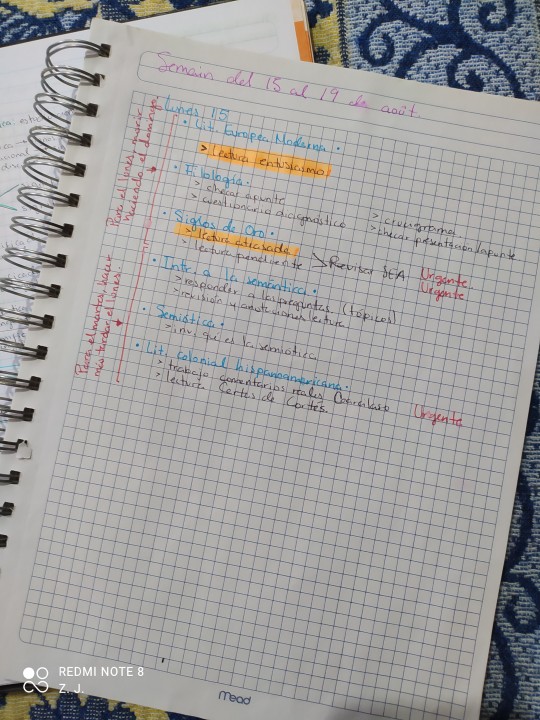 Semain del 15 al 19 de août.
Lunes 15
• Lit. Europea Moderna.
> Lectura entusiasmo
• Filología.
> checar apunte
> cuestionario diagnóstico
> crucigrama
> checar presentación/apunte
• Siglos de Oro.
> lectura atrasada
> lectura pendiente
> Revisar SEA
Urgente
Urgente
• Intr. a la semántica.
> responder a las preguntas (tópicos)
> revisión y anotaciones lectura
• Semiótica.
> inv. qué es la semiótica
• Lit. colonial hispanoamericana.
> trabajo comentarios reales
> lectura Cartas de Cortés.
Urgente
Para el lunes, hacer
el domingo.
Para el martes hacer
el lunes.
mead
REDMI NOTE 8
Z. J.